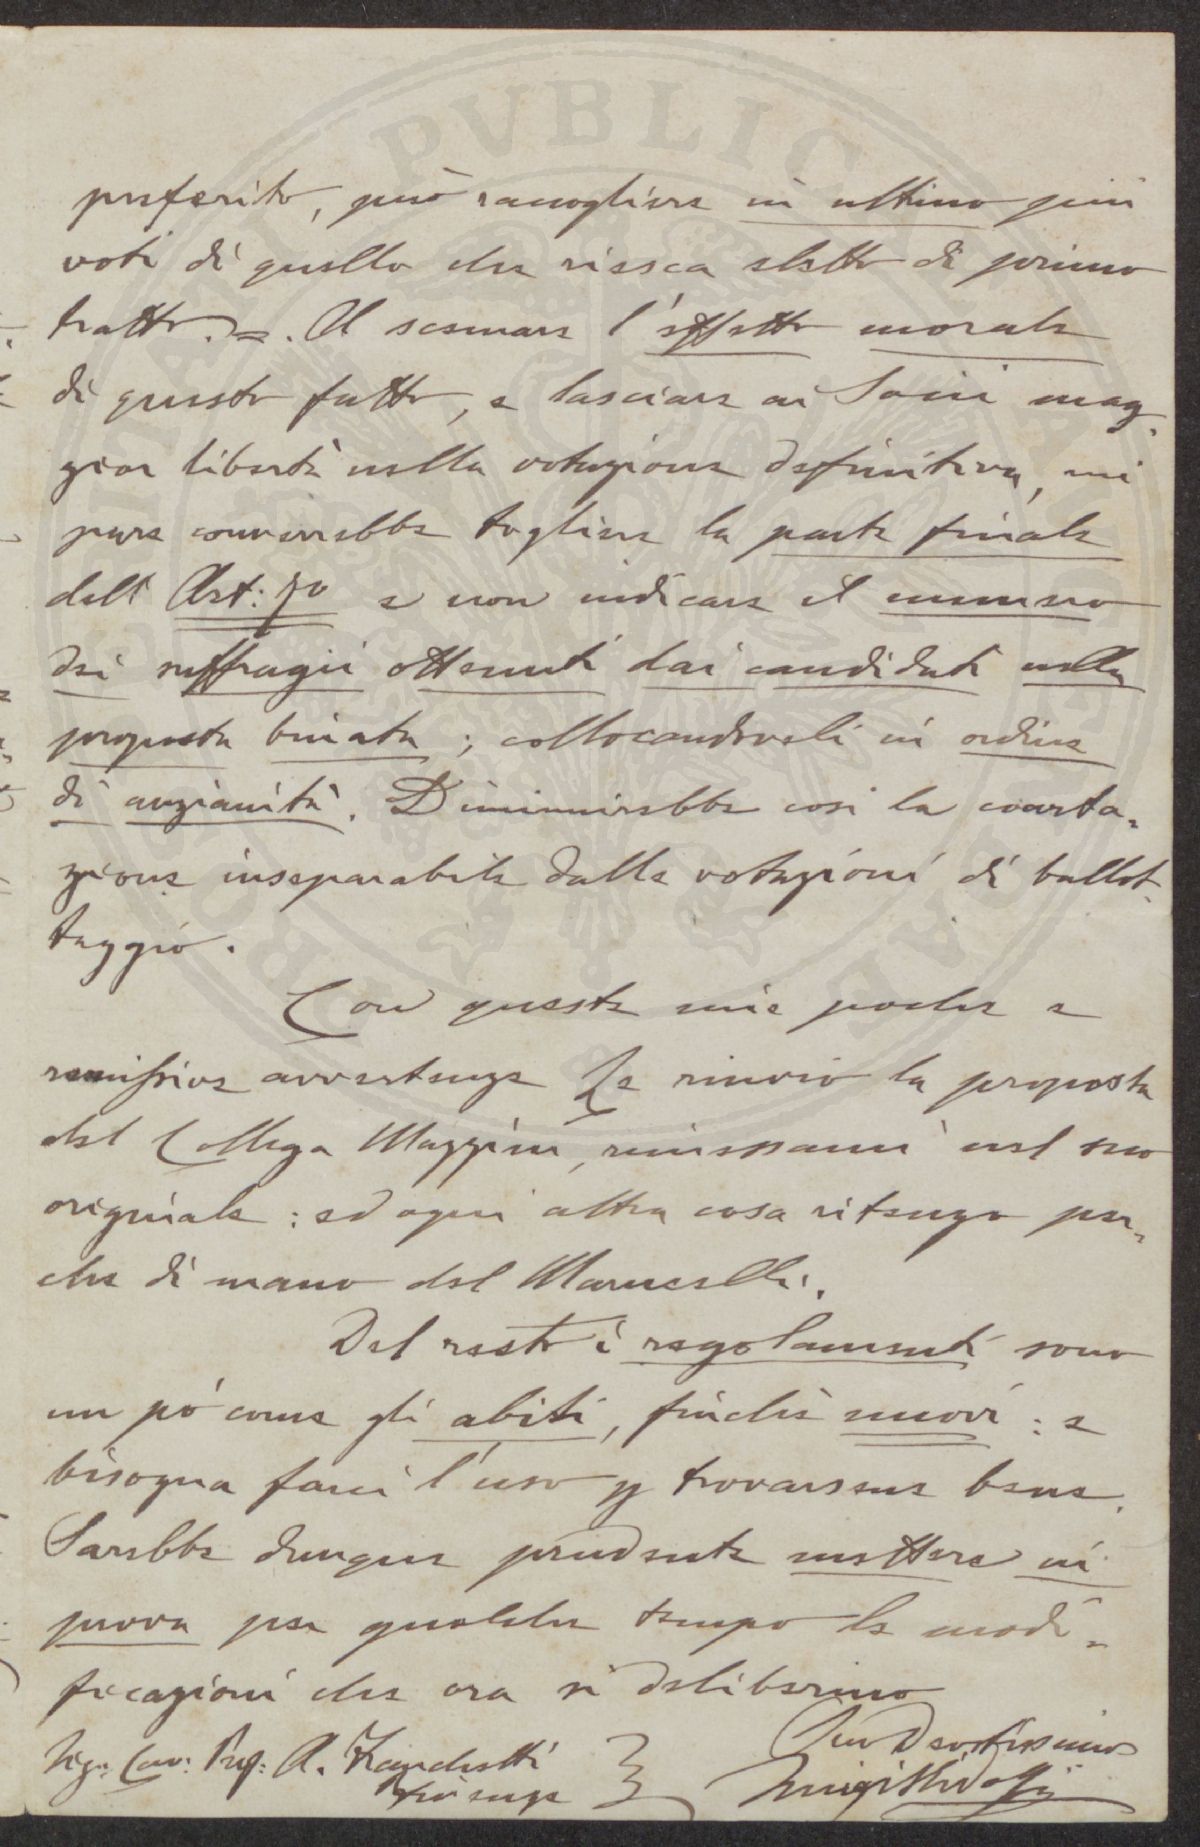 preferito, può raccogliere in ultimo più
voti di quello che riesca eletto di primo
tratto. =. A scemare l'effetto morale
di questo fatto, e lasciare ai Socii mag-
gior libertà nella votazione definitiva, mi
pare converrebbe togliere la parte finale
dell' Art: 7º e non indicare il numero
dei suffragii ottenuti dai candidati nella
proposta binata; collocandoveli in ordine
di anzianità. Diminuirebbe così la coarta-
zione inseparabile dalle votazioni di ballot-
taggio.
Con queste mie poche e
remissive avvertenze Le rinvio la proposta
del Collega Mazzini, rimessami nel suo
originale: ed ogni altra cosa ritengo per-
che di mano del Marucelli.
Del resto i regolamenti sono
un pó come gli abiti, finchè nuovi: e
bisogna farci l'uso p trovarsene bene.
Sarebbe dunque prudente mettere in
prova per qualche tempo le modi-
ficazioni che ora si deliberino
Suo Devotissimo
Sig: Cav: Prof: A. Zanchetti
Firenze